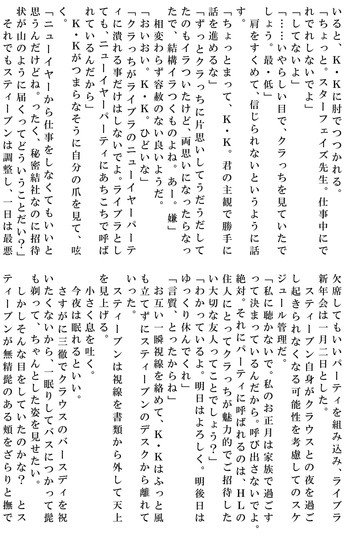 いると、K・Kに肘でつつかれる。
「ちょっと。スターフェイズ先生。仕事中にで
れでれしないでよ」
「してないよ」
「……いやらしい目で、クラっちを見ていたで
しょう。最・低」
肩をすくめて、信じられないというように話
す。
「ちょっとまって、K・K。君の主観で勝手に
話を進めるな」
「ずっとクラっちに片思いしてうだうだして
たのもイラついたけど、両思いになったらなっ
たで、結構イラつくものよね。あー。嫌」
相変わらず容赦のない良いようだ。
「おいおい。K・K。ひどいな」
「クラっちがライブラのニューイヤーパーテ
ィに潰れる事だけはしないでよ。ライブラとし
ても、ニューイヤーパーティにあちこちで呼ば
れているんだから」
K・Kがつまらなそうに自分の爪を見て、呟
く。
「ニューイヤーから仕事をしなくてもいいと
思うんだけどね。ったく、秘密結社なのに招待
状が山のように届くってどういうことだい?」
それでもスティーブンは調整し、一日は最悪
欠席してもいいパーティを組み込み、ライブラ
新年会は一月二日とした。
スティーブン自身がクラウスとの夜を過ご
し起きられなくなる可能性を考慮してのスケ
ジュール管理だ。
「私に聴かないで。私のお正月は家族で過すっ
て決まっているんだから。呼び出さないでよ。
絶対。それにパーティに呼ばれるのは、HLの
住人にとってクラっちが魅力的でご招待した
い大切な友人ってことでしょう?」
「わかっているよ。明日はよろしく。明後日は
ゆっくり休んでくれ」
「言質、とったからね」
お互い一瞬視線を絡めて、K・Kはふっと風
も立てずにスティーブンのデスクから離れて
いった。
スティーブンは視線を書類から外して天上
を見上げる。
小さく息を吐く。
今夜は眠れるといい。
さすがに三徹でクラウスのバースディを祝
いたくないから、一眠りしてバスにつかって髭
も剃って、ちゃんとした姿を見せたい。
しかしそんな目をしていたのかな? とス
ティーブンが無精髭のある頬をざらりと撫で